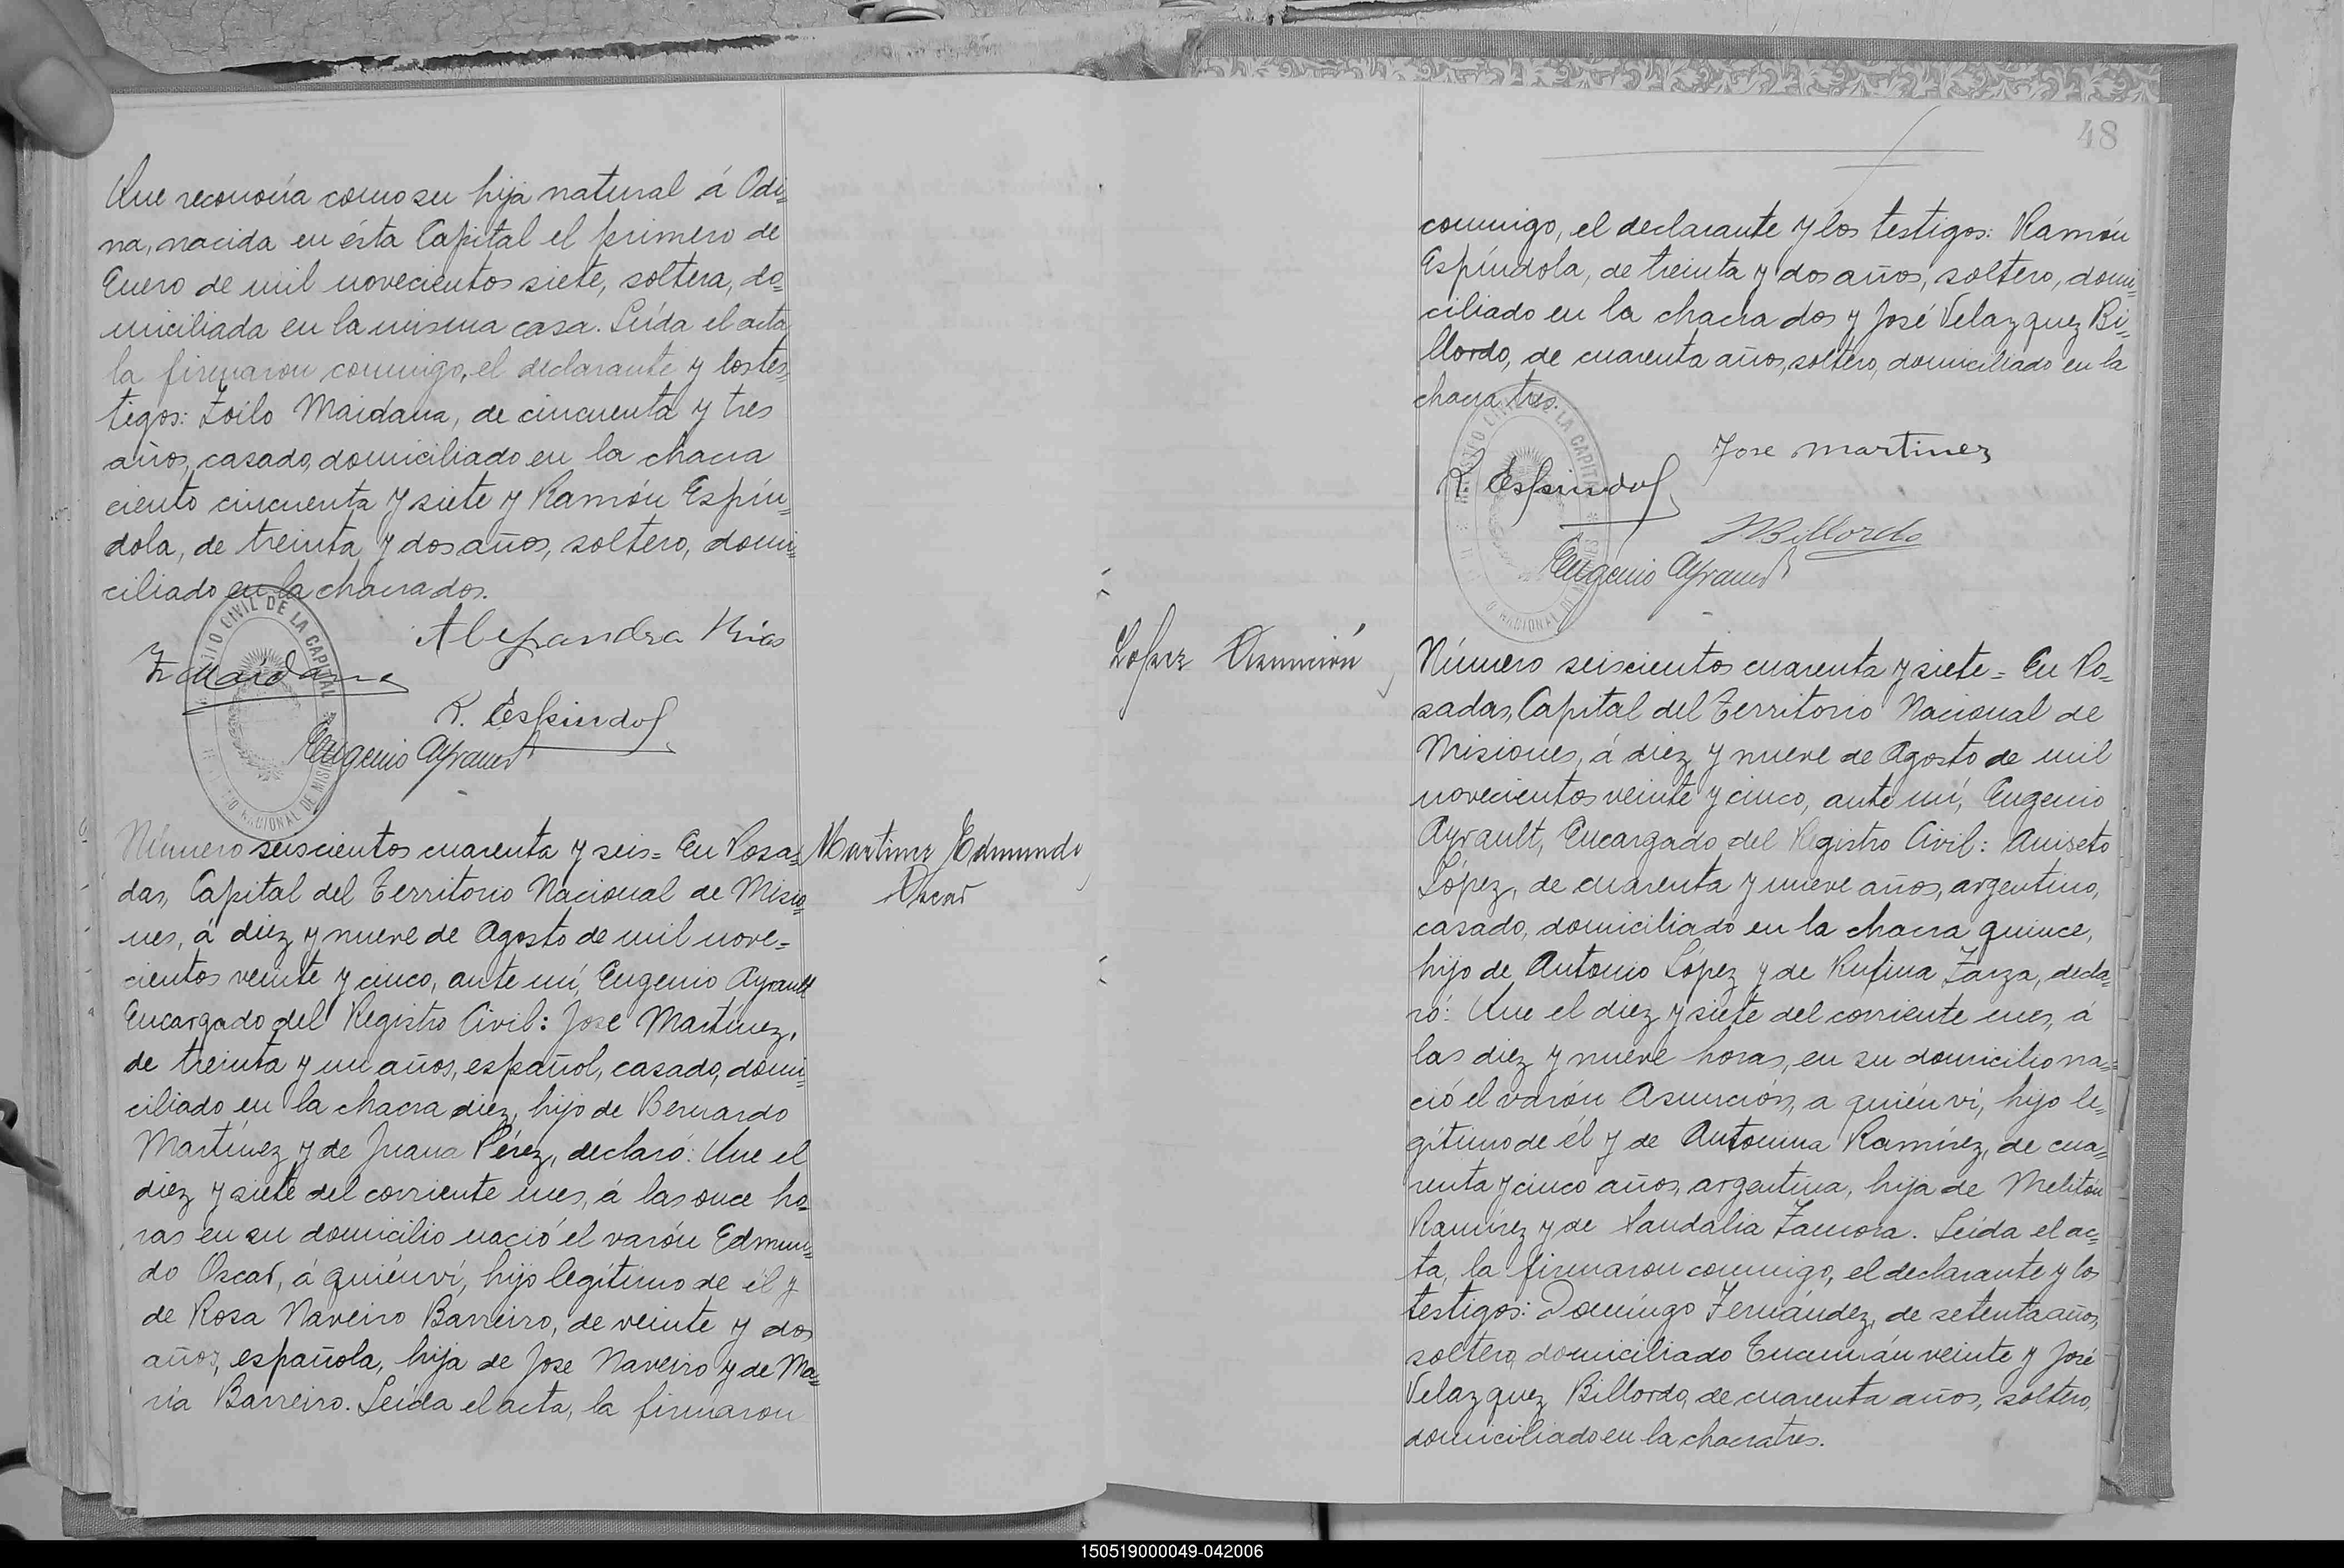 Que reconocía como su hija natural á Odi=
na, nacida en ésta Capital el primero de
Enero de mil novecientos siete, soltera, do=
miciliada en la misma casa. Leída el acta
la firmaron conmigo, el declarante y los tes=
tigos: Zoilo Maidana, de cincuenta y tres
años, casado, domiciliado en la chacra
ciento cincuenta y siete y Ramón Espín=
dola, de treinta y dos años, soltero, domi=
ciliado en la chacra dos.
Alejandra Rios
Z Maidana
R. Espindol
Eugenio Ayrault
REGISTRO CIVIL DE LA CAPITAL
TERRITORIO NACIONAL DE MISIONES
Número seiscientos cuarenta y seis= En Posa=
das, Capital del Territorio Nacional de Misio=
nes, á diez y nueve de Agosto de mil nove=
cientos veinte y cinco, ante mí, Eugenio Ayrault
Encargado del Registro Civil: Jose Martínez,
de treinta y un años, español, casado, domi=
ciliado en la chacra diez, hijo de Bernardo
Martínez y de Juana Pérez, declaró: Que el
diez y siete del corriente mes, á las once ho=
ras en su domicilio nació el varón Edmun=
do Oscar, á quién ví, hijo legítimo de él y
de Rosa Naveiro Barreiro, de veinte y dos
años, española, hija de Jose Naveiro y de Ma=
ría Barreiro. Leída el acta, la firmaron
Martinez Edmundo
Oscar
48
conmigo, el declarante y los testigos: Ramón
Espíndola, de treinta y dos años, soltero, domi=
ciliado en la chacra dos y José Velazquez Bi=
llordo, de cuarenta años, soltero, domiciliado en la
chacra tres.
Jose Martinez
R. Espindol
Billordo
Eugenio Ayrault
REGISTRO CIVIL DE LA CAPITAL
TERRITORIO NACIONAL DE MISIONES
Lopez Asunción
Número seiscientos cuarenta y siete= En Po=
sadas, Capital del Territorio Nacional de
Misiones, á diez y nueve de Agosto de mil
novecientos veinte y cinco, ante mí, Eugenio
Ayrault, Encargado del Registro Civil: Aniseto
López, de cuarenta y nueve años, argentino,
casado, domiciliado en la chacra quince,
hijo de Antonio López y de Rufina Zarza, decla=
ró: Que el diez y siete del corriente mes, á
las diez y nueve horas, en su domicilio na=
ció el varón Asunción, a quién ví, hijo le=
gítimo de él y de Antonina Ramírez, de cua=
renta y cinco años, argentina, hija de Melitón
Ramírez y de Sandalia Zamora. Leída el ac=
ta, la firmaron conmigo, el declarante y los
testigos: Domíngo Fernández, de setenta años,
soltero, domiciliado Tucumán veinte y José
Velazquez Billordo, de cuarenta años, soltero,
domiciliado en la chacra tres.
150519000049-042006